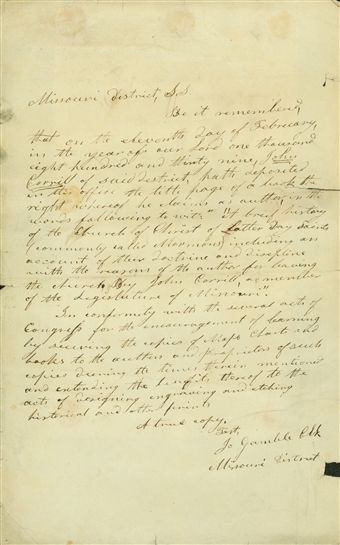 Missouri District, Sct
Be it remembered,
that on the eleventh day of February,
in the year of our Lord one thousand
eight hundred and thirty nine, John
Corrill of said district, hath deposited
in this office the title page of a book the
right whereof he claims as author, in the
words following to wit: "A brief history
of the Church of Christ of Latter Day Saints
(commonly called Mormons) including an
account of their doctrine and discipline
with the reasons of the author for leaving
the church, By John Corrill, a member
of the Legislature of Missouri".
In conformity with the several acts of
Congress for the encouragement of learning
by securing the copies of Maps Charts and
books to the authors and proprietors of such
copies during the times therein mentioned
and extending the benefits thereof to the
acts of designing engraving and etching
historical and other prints
A true copy,
Test,
Jo Gamble Clk
Missouri District